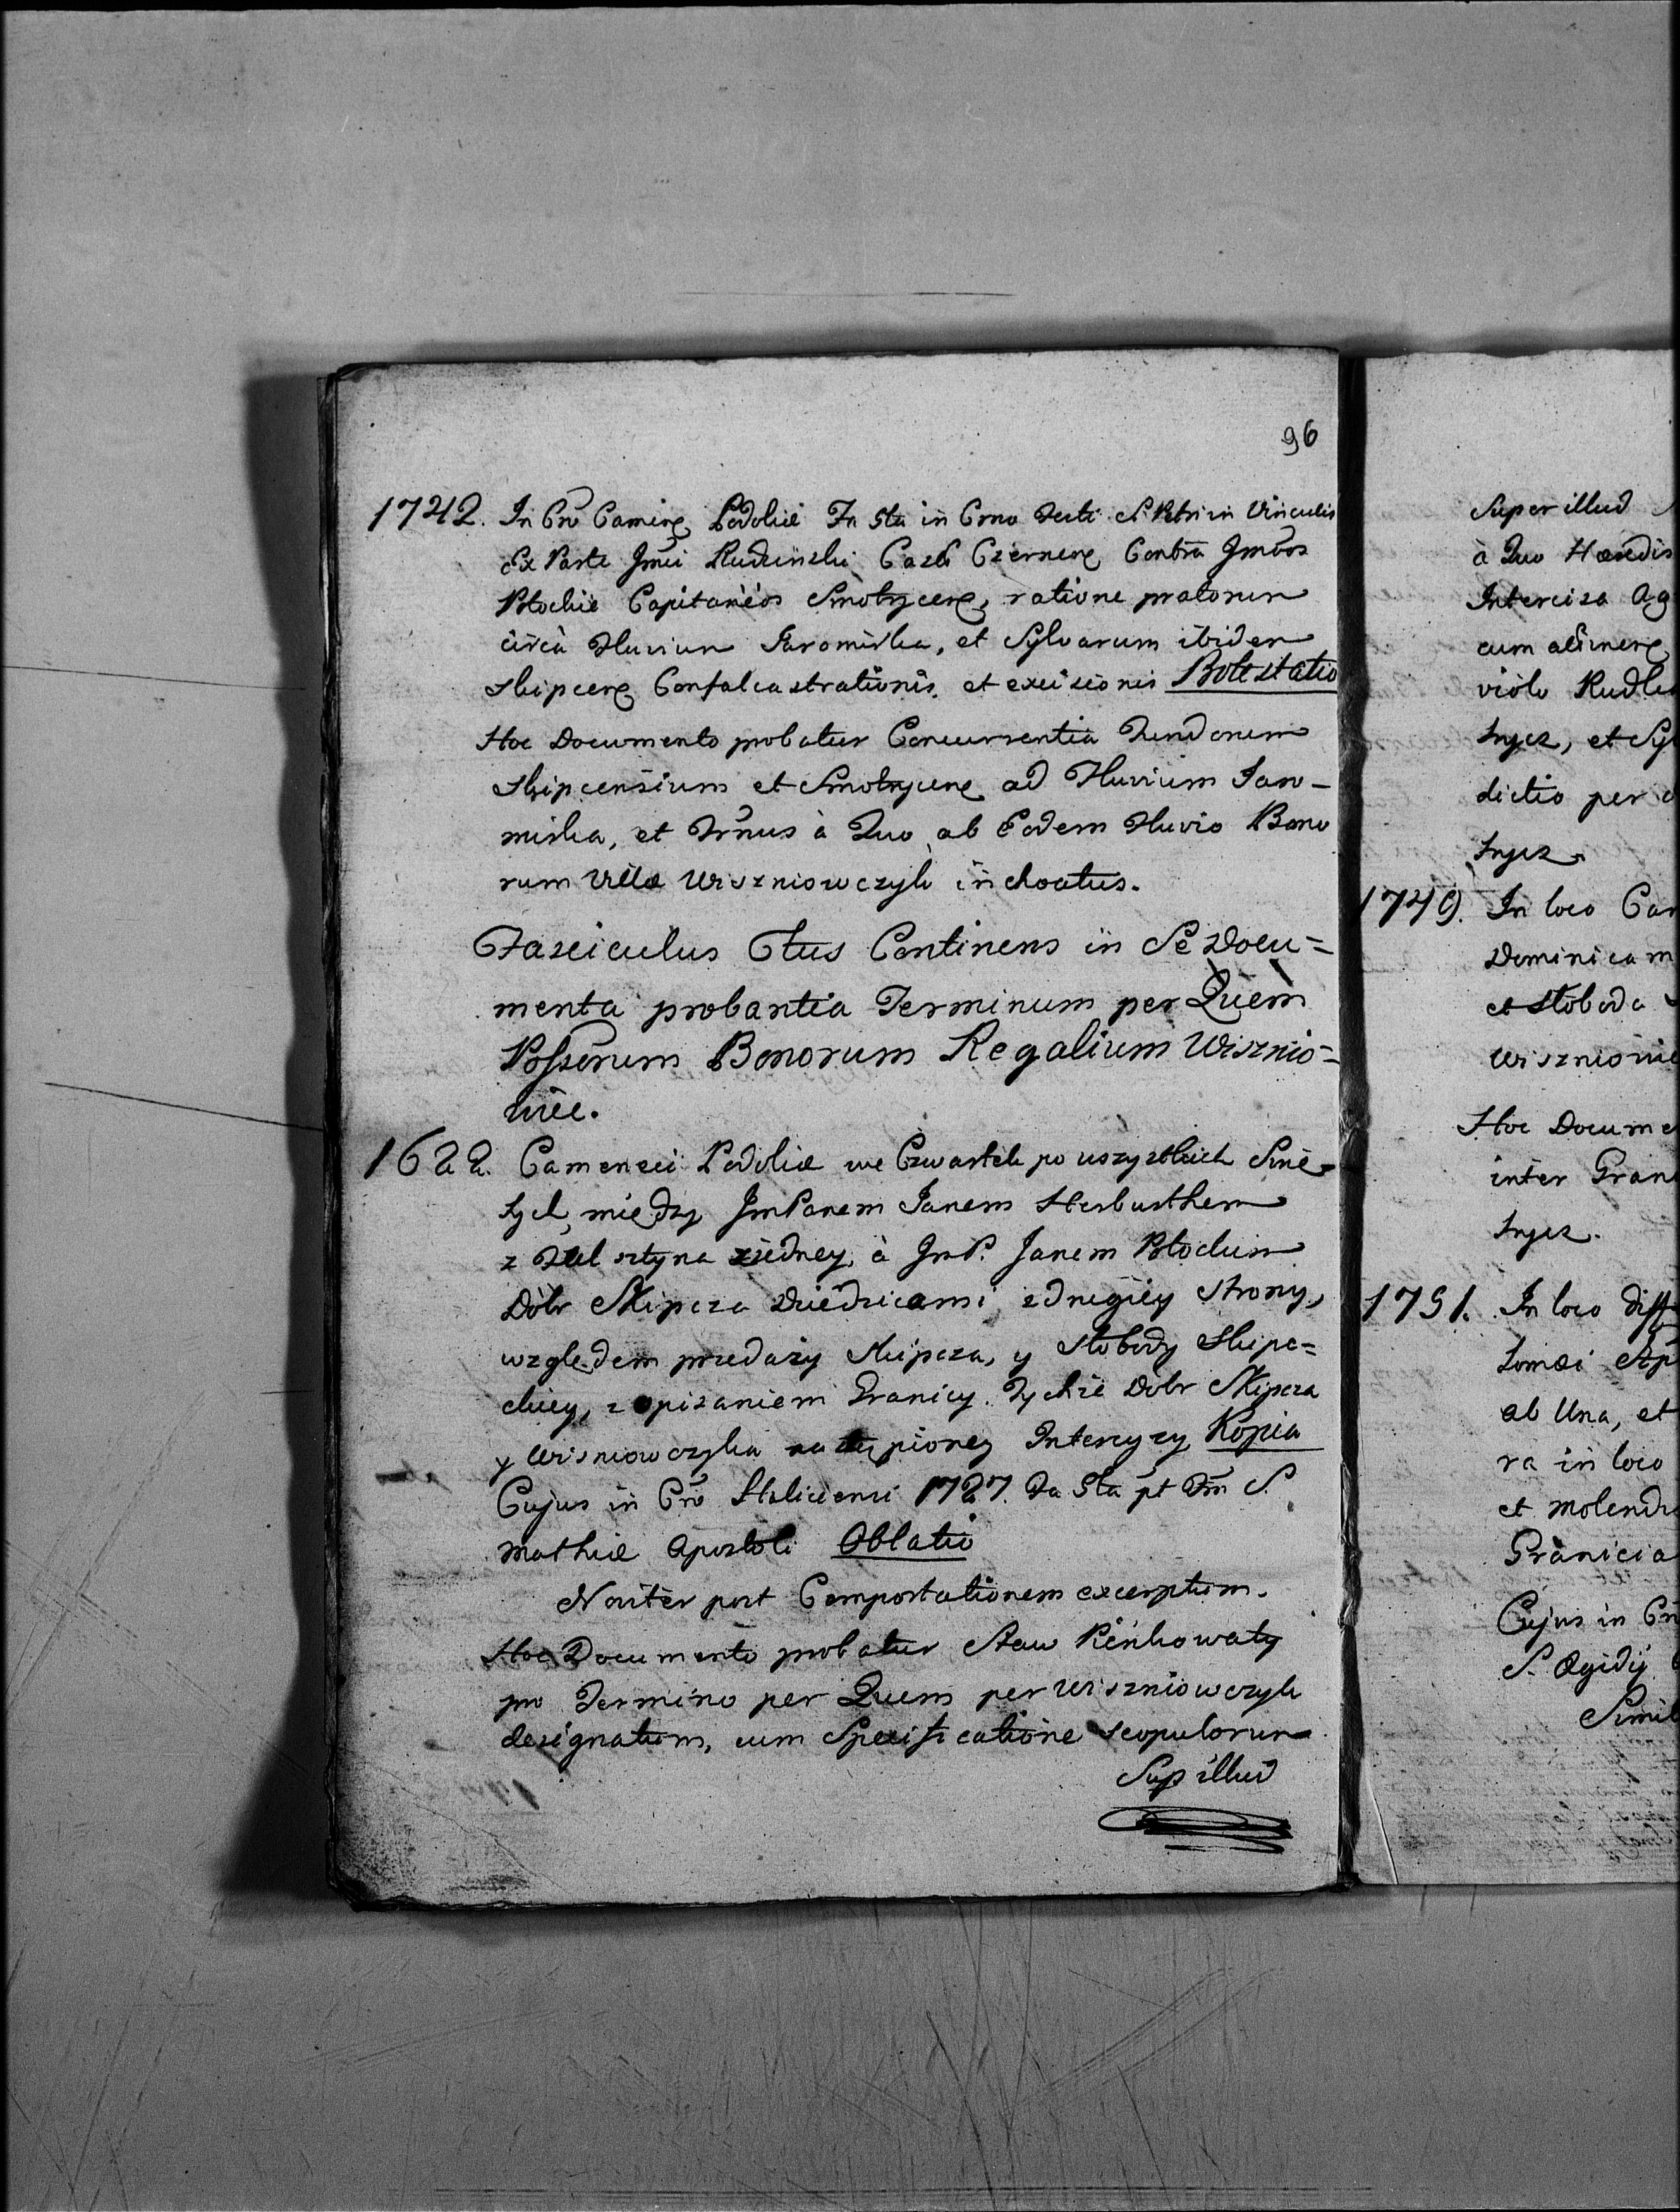 96
1742. In Crō Camiƞ Podoliæ Fa 5ta in Crno Festi S. Petri in Vinculis
Ex Parte Jmci Rudzinski Castel Czerneƞ Contra Jmcos
Potockie Capitaneos Smotryceƞ, ratione pratorum
circa Fluvium Jaromirka, et Sylvarum ibidem
Skipceƞ Confalcastrationis, et excisionis Protestatio
Hoc Documento probatur Concurrentia Fundorum
Skipcensium et Smotryceƞ ad Fluvium Jaro-
mirka, et Trnus à Quo ab Eodem Fluvio Bono
rum Villæ Wiszniowczyk inchoatus.
Fasciculus 6tus Continens in Se Docu=
menta probantia Terminum per Quem
Possrum Bonorum Regalium Wisznio=
wiec.
1622. Cameneci Podoliæ we Czwartek po wszystkich Swię-
tych, między JmPanem Janem Herburthem
z Felsztyna z iedney, à JmP. Janem Potockim
Dobr Skipcza Dziedzicami z drugiey Strony,
względem przedaży Skipcza, y Słobody Skipc=
ckiey, z opisaniem Granicy Tychże Dobr Skipcza
y Wisniowczyka nastąpioney Intercyzy Kopia
Cujus in Crō Haliciensi 1727. Fa 5ta pt Fm S.
Mathiæ Apostoli Oblatio
Noviter post Comportationem excerptum.
Hoc Documento probatur Staw Pieńkowaty
pro Termino per Quem per Wiszniowczyk
designatum, cum Specificatione scopulorum
Sup illud
Super illud
à Quo Hæredis
Interciza
cum
violo
Tryez, et
dictio per
Tryez.
1749. In loco
Dominicam
et Słoboda
Wisznioni
Hoc Docume
inter Gran
Tryez.
1751. In loco diff
Tomæi
ab Una, et
ra in loco
et Molendi
Granicia
Cujus in Crō
S. Ægidij
Simil